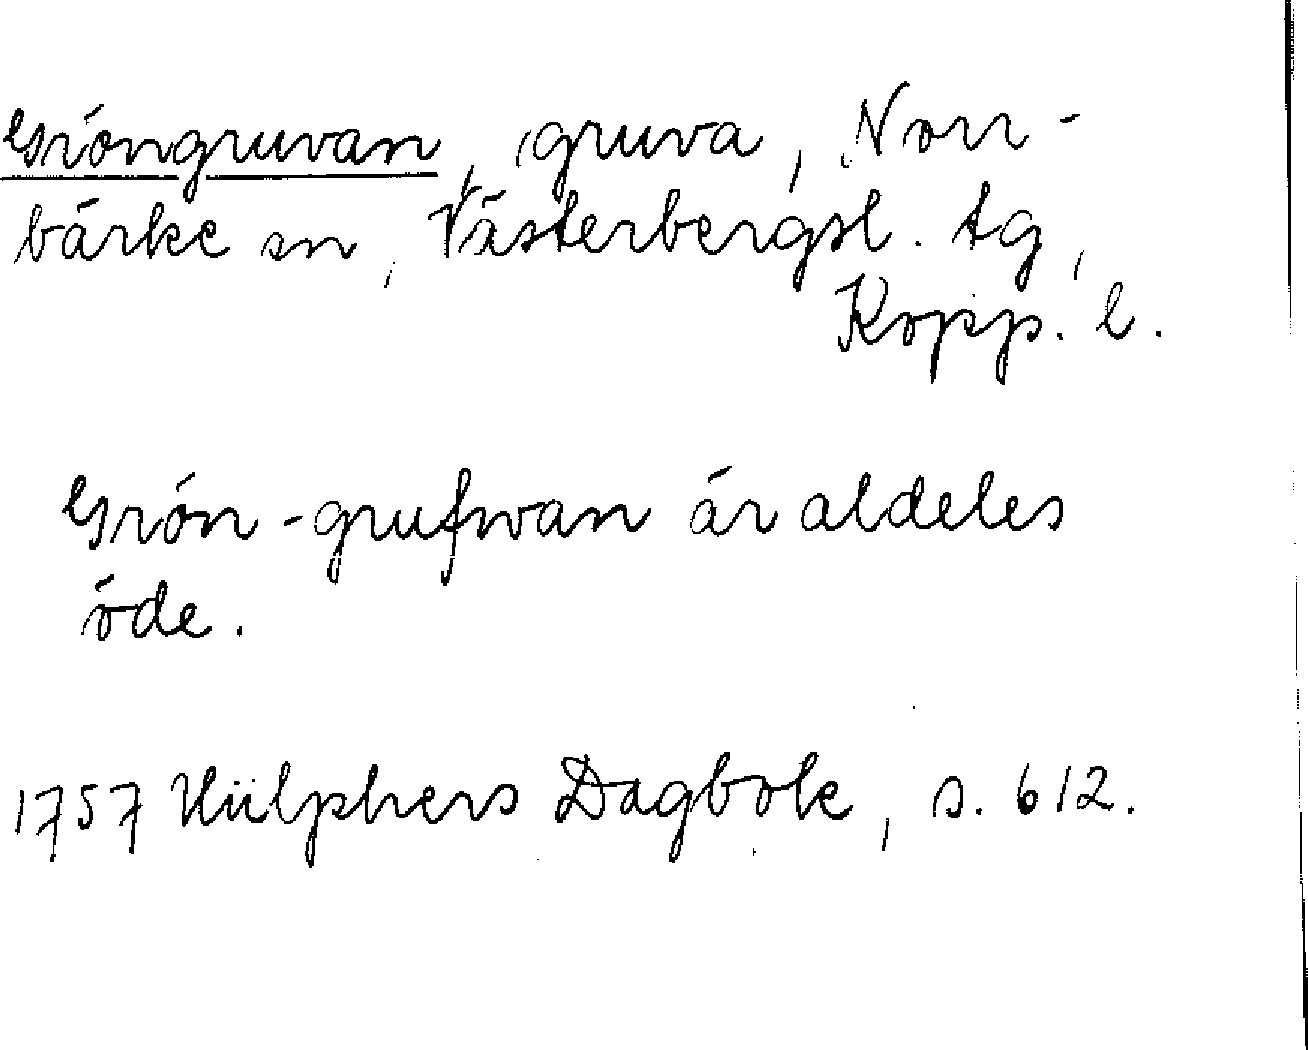 Gröngruvan, gruva, Norr-
bärke sn, Västerbergsl. tg,
Kopp. l.
Grön-grufwan är aldeles
öde.
1757 Hülphers Dagbok, s. 612.